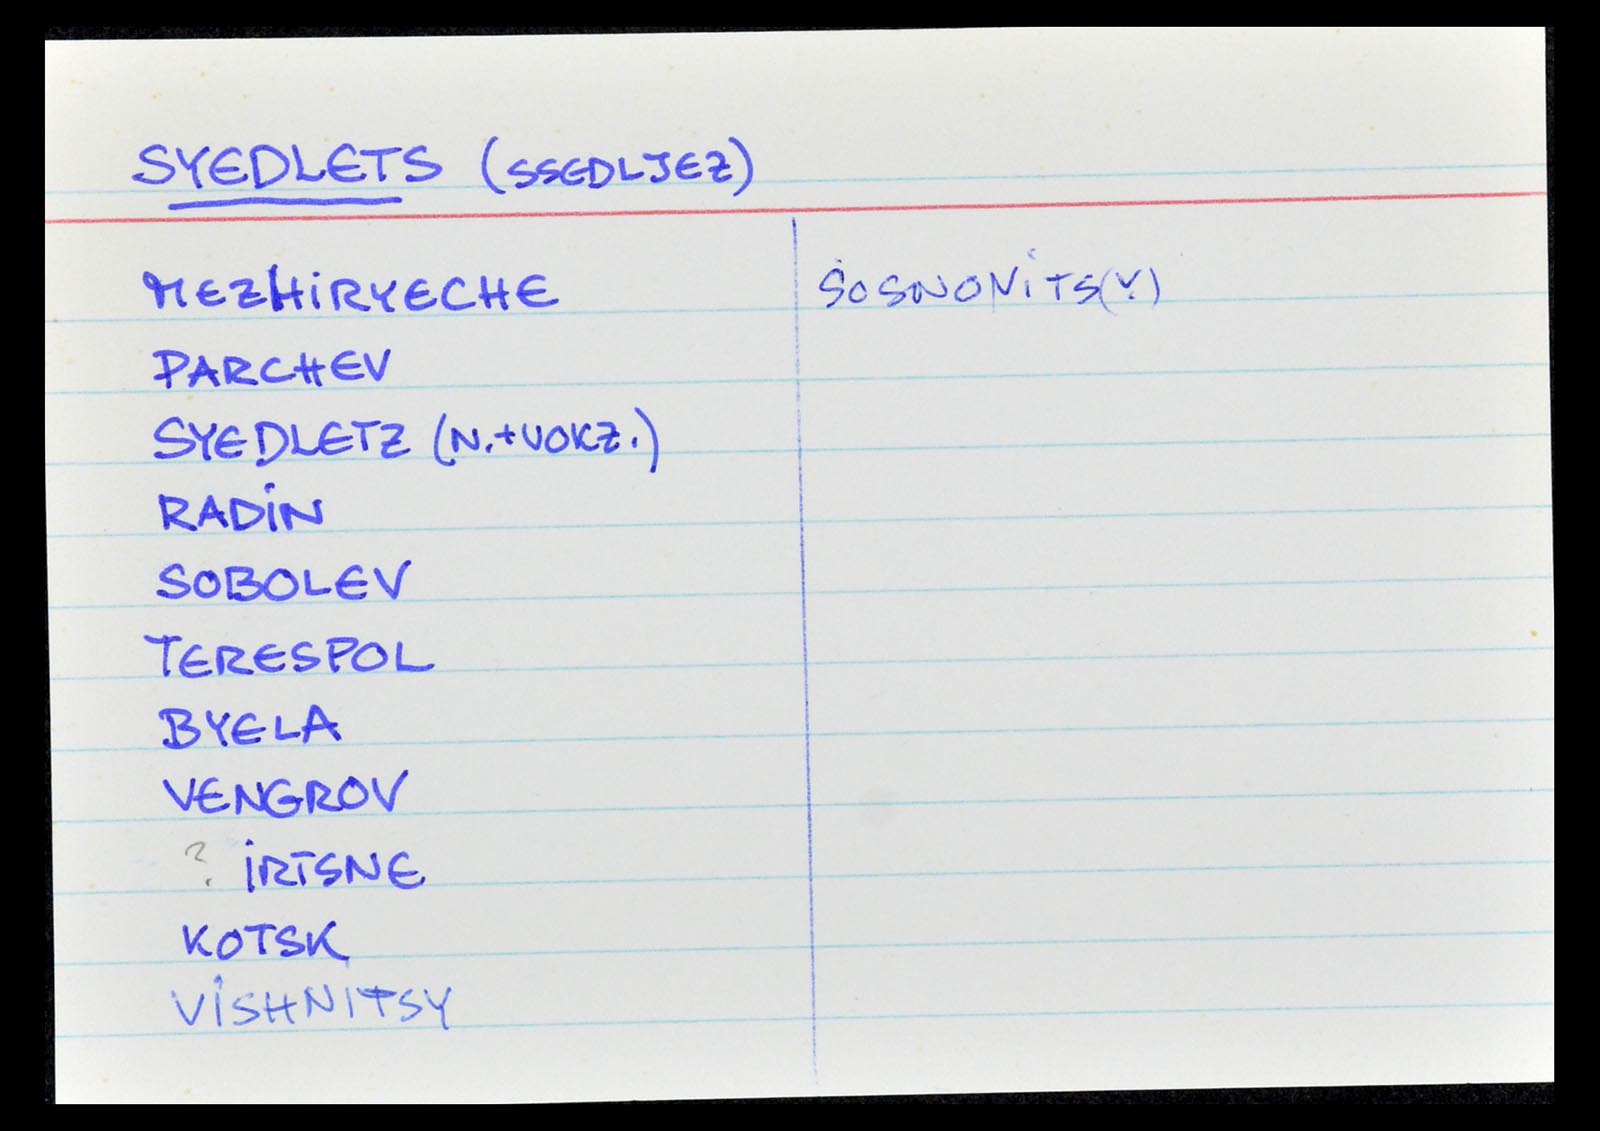 SYEDLETS (SSEDLJEZ)
MEZHIRYECHE
PARCHEV
SYEDLETZ (N.+VOKZ.)
RADIN
SOBOLEV
TERESPOL
BYELA
VENGROV
? IRTSNE
KOTSK
VISHNITSY
SOSNOVITS(Y)